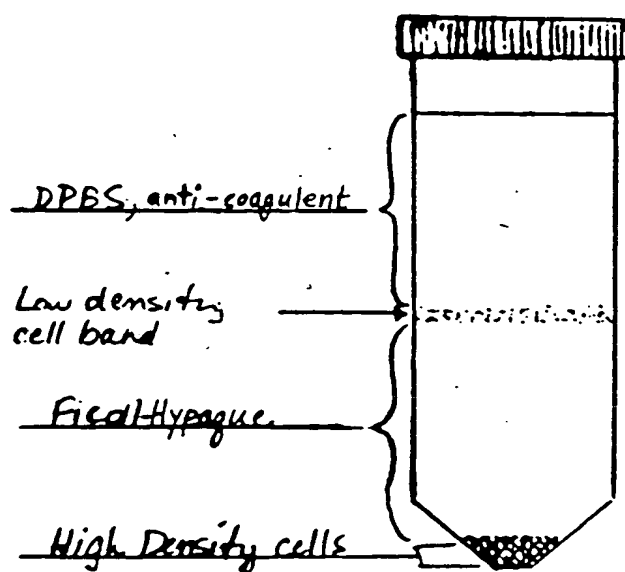 DPBS, anti-coagulent
Low density
cell band
Ficoll-Hypaque
High Density cells